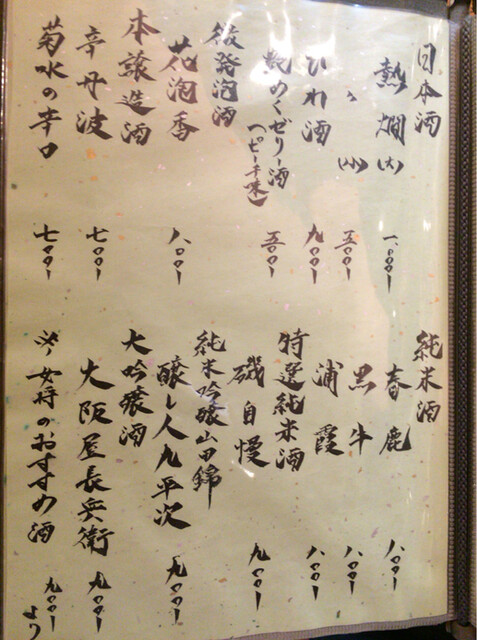 日本酒
熱燗(大) 一、〇〇〇ー
〃 (小) 五〇〇ー
ひれ酒 九〇〇ー
艶めくゼリー酒 五〇〇ー
(ピーチ味)
微発泡酒
花泡香 八〇〇ー
本譲造酒
辛丹波 七〇〇ー
菊水の辛口 七〇〇ー
純米酒
春鹿 八〇〇ー
黒牛 八〇〇ー
浦霞 八〇〇ー
特選純米酒
磯自慢 九〇〇ー
純米吟醸山田錦
醸し人九平次 九〇〇ー
大吟醸酒
大阪屋長兵衛 九〇〇ー
※女将のおすすめ酒 九〇〇ーより